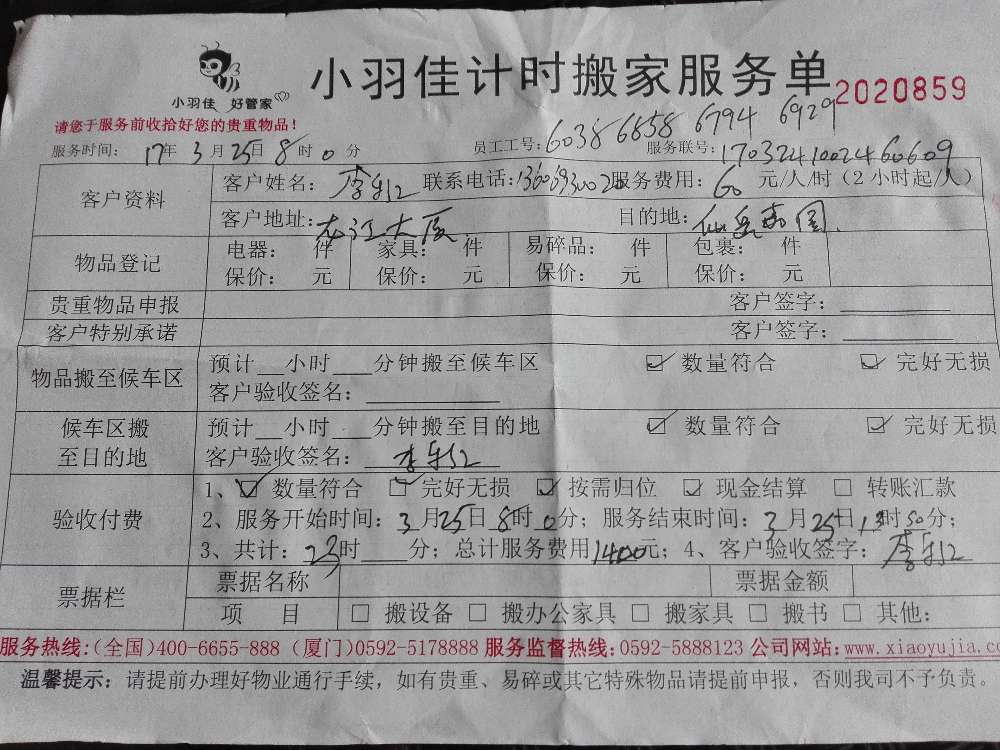 小羽佳 好管家
小羽佳计时搬家服务单
2020859
请您于服务前收拾好您的贵重物品！
服务时间： 17年 3月 25日 8时 0分
员工工号：6038 6858 6794 6929
服务联号：1703241002460609
客户资料
客户姓名： 联系电话： 服务费用：60元/人/时（2小时起/人）
客户地址：龙江大厦 目的地：仙岳花园
物品登记
电器： 件 家具： 件 易碎品： 件 包裹： 件
保价： 元 保价： 元 保价： 元 保价： 元
贵重物品申报 客户签字：
客户特别承诺 客户签字：
物品搬至候车区
预计__小时___分钟搬至候车区 ☑ 数量符合 ☑ 完好无损
客户验收签名：
候车区搬至目的地
预计__小时___分钟搬至目的地 ☑ 数量符合 ☑ 完好无损
客户验收签名：
验收付费
1、☑ 数量符合 ☑ 完好无损 ☑ 按需归位 ☑ 现金结算 □ 转账汇款
2、服务开始时间：3月25日8时0分；服务结束时间：3月25日13时50分；
3、共计：23时___分；总计服务费用1400元；4、客户验收签字：
票据栏
票据名称 票据金额
项 目 □ 搬设备 □ 搬办公家具 □ 搬家具 □ 搬书 □ 其他：
服务热线：(全国)400-6655-888 (厦门)0592-5178888 服务监督热线：0592-5888123 公司网站：www.xiaoyujia.co
温馨提示：请提前办理好物业通行手续，如有贵重、易碎或其它特殊物品请提前申报，否则我司不予负责。